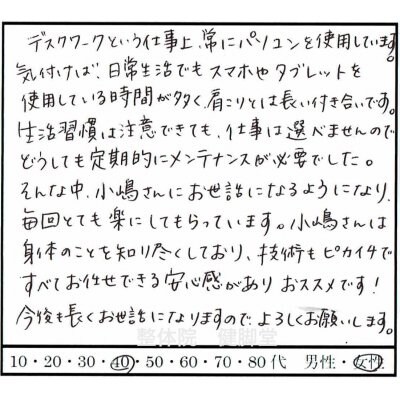 デスクワークという仕事上、常にパソコンを使用しています。
気付けば、日常生活でもスマホやタブレットを
使用している時間が多く、肩こりとは長い付き合いです。
生活習慣は注意できても、仕事は選べませんので
どうしても定期的にメンテナンスが必要でした。
そんな中、小嶋さんにお世話になるようになり、
毎回とても楽にしてもらっています。小嶋さんは
身体のことを知り尽くしており、技術もピカイチで
すべてお任せできる安心感がありおススメです！
今後も長くお世話になりますのでよろしくお願いします。
整体院 健脚堂
10・20・30・40・50・60・70・80代 男性・女性